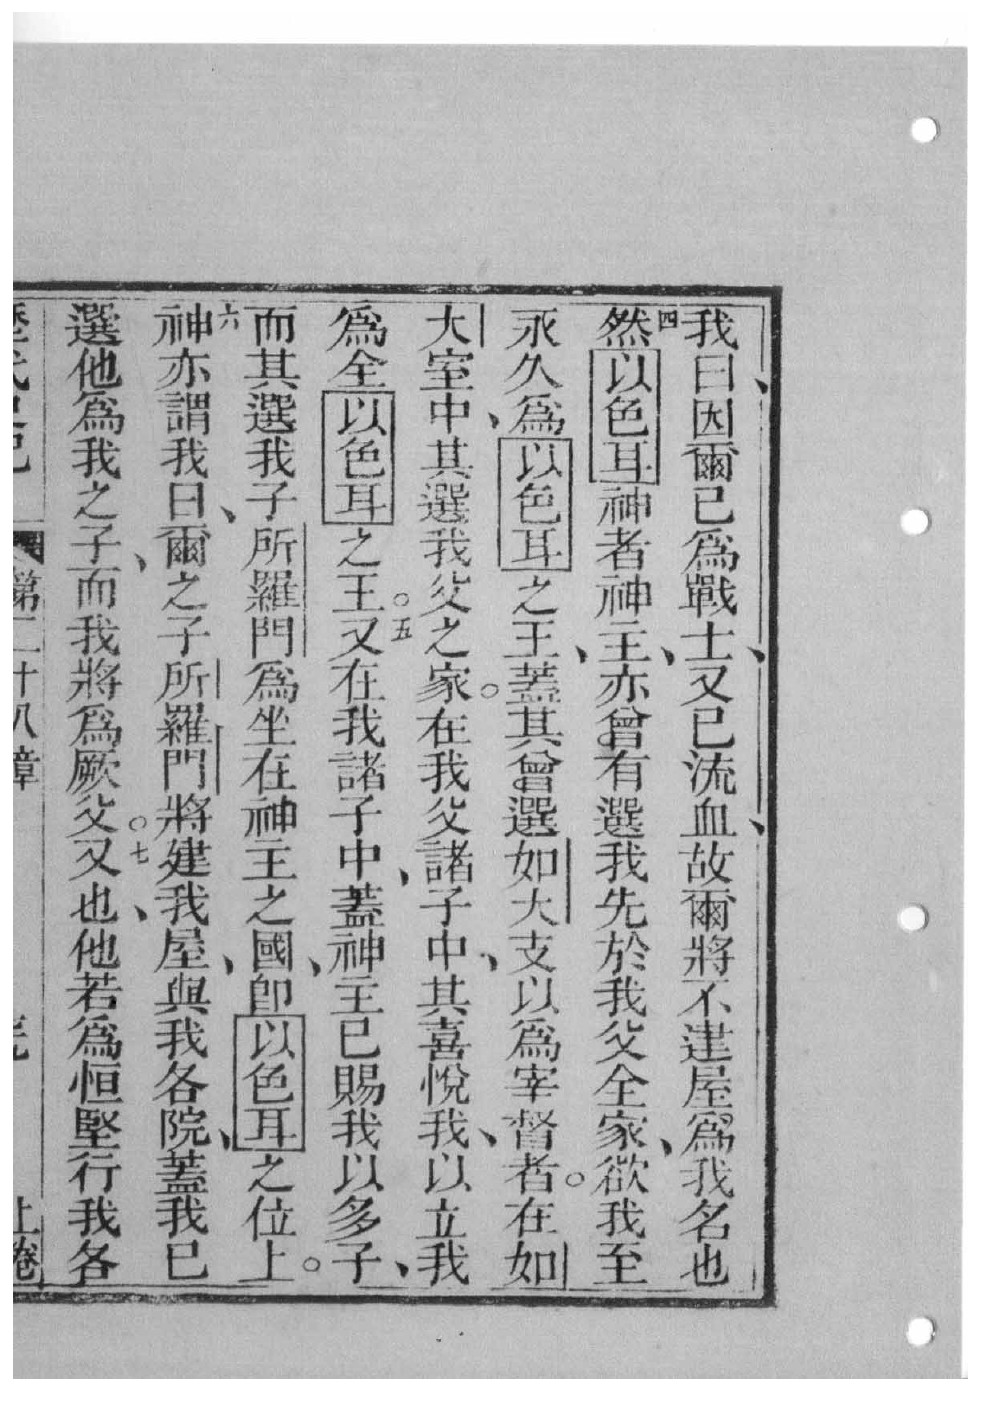 我曰、因爾已爲戰士、又已流血、故爾將不建屋爲我名也
四然以色耳神者神主、亦曾有選我先於我父全家、欲我至
永久爲以色耳之王、蓋其曾選如大支以爲宰督者。在如
大室中、其選我父之家。在我父諸子中、其喜悅我、以立我
爲全以色耳之王。五又在我諸子中、蓋神主已賜我以多子、
而其選我子所羅門爲坐在神王之國、卽以色耳之位上。
六神亦謂我曰、爾之子所羅門將建我屋、與我各院、蓋我已
選他爲我之子、而我將爲厥父。七又也、他若爲恒堅行我各
第二十八章 上卷